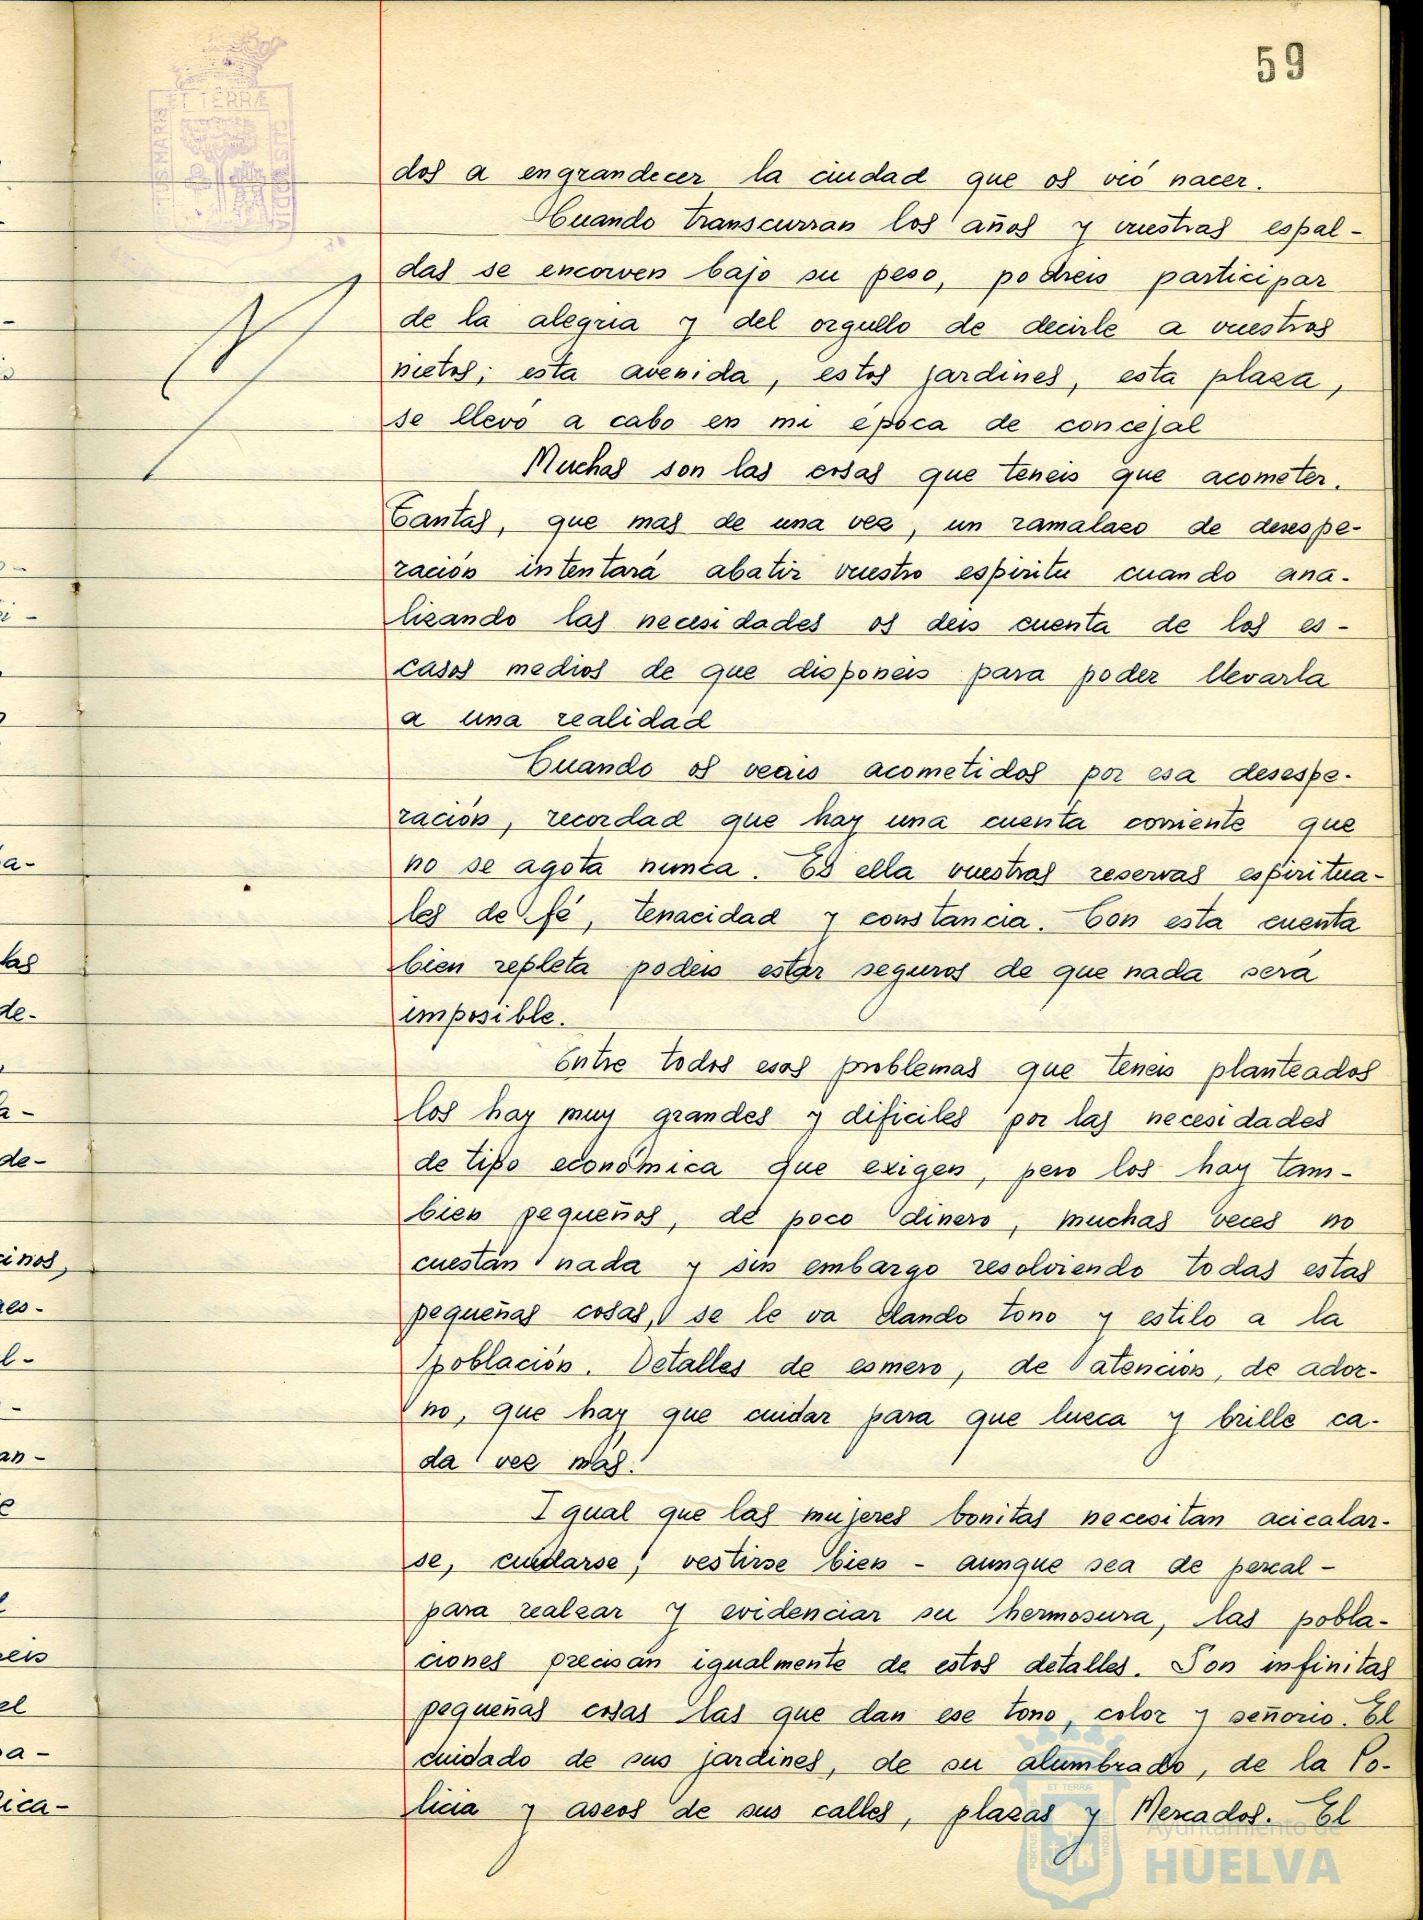 59
ET TERRÆ
CUSTODIA
dos a engrandecer la ciudad que os vió nacer.
Cuando transcurran los años y vuestras espal-
das se encorven bajo su peso, podreis participar
de la alegria y del orgullo de decirle a vuestros
nietos; esta avenida, estos jardines, esta plaza,
se llevó a cabo en mi época de concejal
Muchas son las cosas que teneis que acometer.
Tantas, que mas de una vez, un ramalazo de desespe-
ración intentará abatir vuestro espiritu cuando ana-
lizando las necesidades os deis cuenta de los es-
casos medios de que disponeis para poder llevarla
a una realidad
Cuando os veais acometidos por esa desespe-
ración, recordad que hay una cuenta corriente que
no se agota nunca. Es ella vuestras reservas espiritua-
les de fé, tenacidad y constancia. Con esta cuenta
bien repleta podeis estar seguros de que nada será
imposible.
Entre todos esos problemas que teneis planteados
los hay muy grandes y dificiles por las necesidades
de tipo económica que exigen, pero los hay tam-
bien pequeños, de poco dinero, muchas veces no
cuestan nada y sin embargo resolviendo todas estas
pequeñas cosas, se le va dando tono y estilo a la
población. Detalles de esmero, de atención, de ador-
no, que hay que cuidar para que luzca y brille ca-
da vez más.
Igual que las mujeres bonitas necesitan acicalar-
se, cuidarse, vestirse bien - aunque sea de percal -
para realzar y evidenciar su hermosura, las pobla-
ciones precisan igualmente de estos detalles. Son infinitas
pequeñas cosas las que dan ese tono, color y señorio. El
cuidado de sus jardines, de su alumbrado, de la Po-
licia y aseos de sus calles, plazas y Mercados. El
Ayuntamiento de
HUELVA